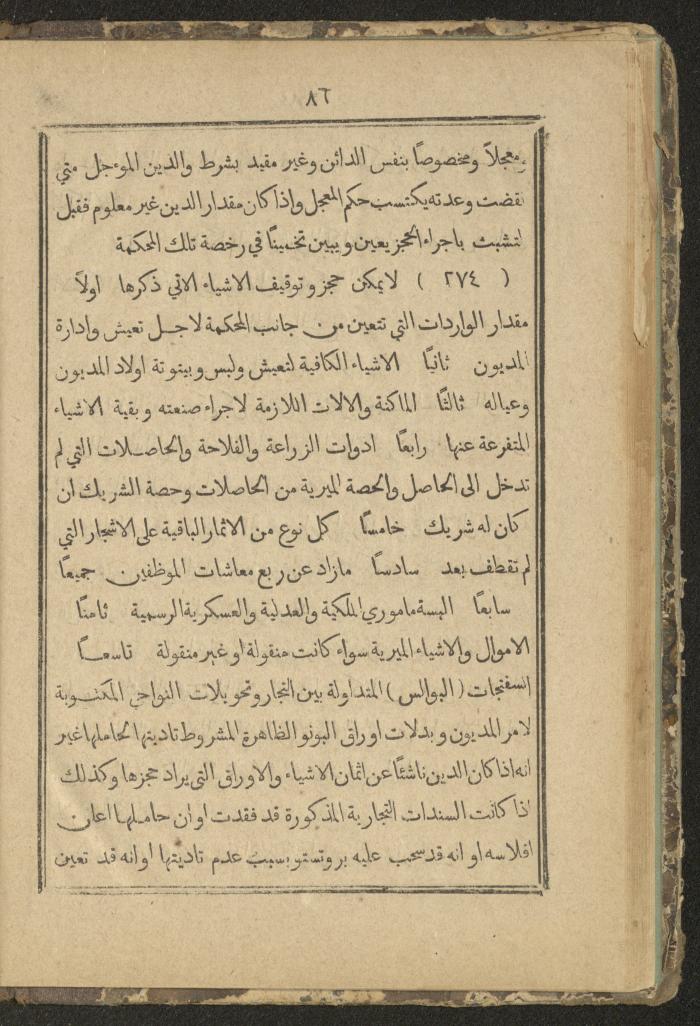 ٨٦
ومعجلاً ومخصوصاً بنفس الدائن وغير مقيد بشرط والدين الموءجل متي
نقضت وعدته يكتسب حكم المعجل واذا كان مقدار الدين غير معلوم فقبل
لتشبث باجراء الحجز يعين ويبين تخميناً في رخصة تلك المحكمة
( ٢٧٤ ) لا يمكن حجز وتوقيف الاشياء الاتي ذكرها اولاً
مقدار الواردات التي تتعين من جانب المحكمة لاجل تعيش وادارة
المديون ثانياً الاشياء الكافية لتعيش ولبس وبيتوتة اولاد المديون
وعياله ثالثاً الماكنة والالات اللازمة لاجراء صنعته وبقية الاشياء
المتفرعة عنها رابعاً ادوات الزراعة والفلاحة والحاصلات التي لم
تدخل الى الحاصل والحصة الميرية من الحاصلات وحصة الشريك ان
كان له شريك خامساً كل نوع من الاثمار الباقية على الاشجار التي
لم تقطف بعد سادساً مازاد عن ربع معاشات الموظفين جميعاً
سابعاً البسة ماموري الملكية والعدلية والعسكرية الرسمية ثامناً
الاموال والاشياء الميرية سواء كانت منقولة او غير منقولة تاسعاً
السفتجات ( البوالس ) المتداولة بين التجار وتحويلات النواحي المكتوبة
لامر المديون وبدلات اوراق البونو الظاهرة المشروط تاديتها لحاملها غير
انه اذا كان الدين ناشئاً عن اثمان الاشياء والاوراق التي يراد حجزها وكذلك
اذا كانت السندات التجارية المذكورة قد فقدت او ان حاملها اعلن
افلاسه او انه قد سحب عليه بروتستو بسبب عدم تاديتها او انه قد تعين